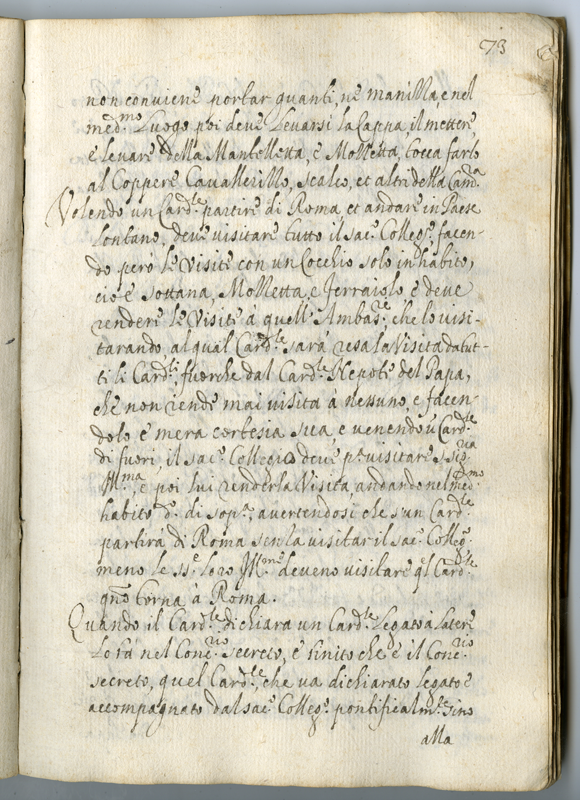 73
non conviene portar guanti, ne maniSSa, e nel
med.mo Luogo poi deve Levarsi la Cappa, il mettere,
e levare della Mantelletta, e Mozzetta, tocca farlo
al Coppere Cavallerizzo, Scalco, et altri della Cam.a
Volendo un Card.le partire di Roma et andare in Paese
lontano, deve visitare tutto il sac. Colleg.o facen-
do però le Visite con un Cocchio solo in habito,
cioè sottana, Mozzetta, e ferraiolo e deve
rendere le Visite a quell' Ambas.re che lo visi-
tarando, al qual Card.le sarà resa la Visita da tut-
ti li Card.li, fuorche dal Card.le Nepote del Papa,
che non rende mai visita à nessuno e facen-
dolo è mera cortesia sua, e venendo ú Card.le
di fuori, il sac. Collegio deve p.o visitare S. Sig.ria
Ill.ma, e poi lui render la Visita, andando nel med.mo
habito d.o di sop.a, avertendosi che s'un Card.le
partirà di Roma senza visitar il sac. Colleg.o
meno le SS.e loro Ill.me deveno visitare q.el Card.le
qño torna a Roma.
Quando il Card.le dichiara un Card.le Legato à latere
lo fà nel Conc.rio secreto, e finito che è il Conc.rio
secreto, quel Card.le, che va dichiarato legato è
accompagnato dal sac. Colleg.o pontificalm.te sino
alla